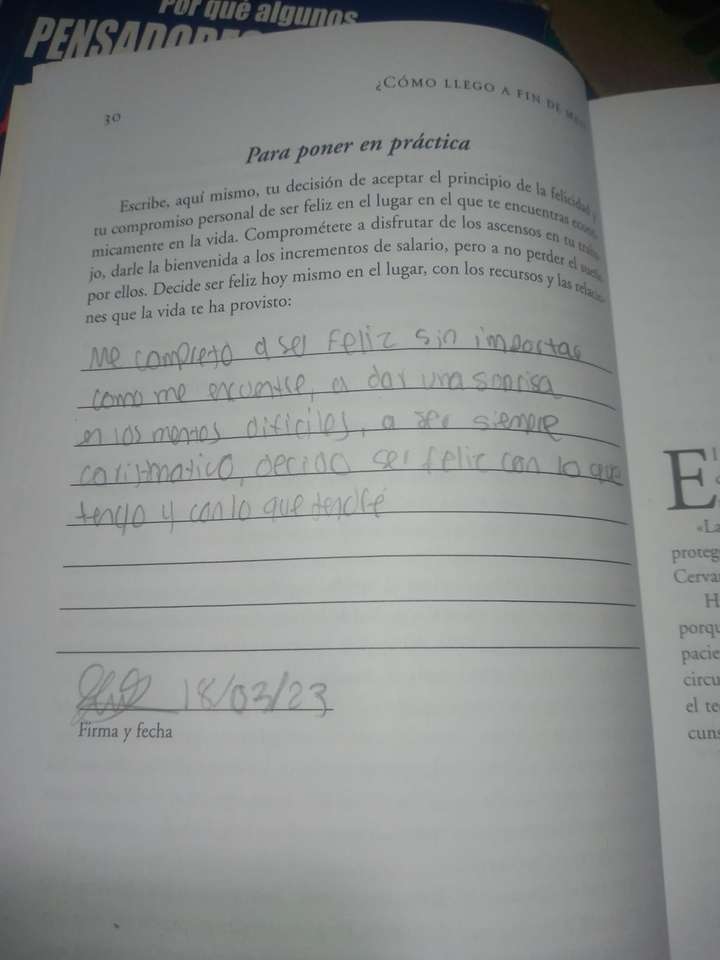 Por qué algunos
PENSADORES
¿CÓMO LLEGO A FIN DE
30
Para poner en práctica
Escribe, aquí mismo, tu decisión de aceptar el principio de la felicidad y
tu compromiso personal de ser feliz en el lugar en el que te encuentras econó-
micamente en la vida. Comprométete a disfrutar de los ascensos en tu traba-
jo, darle la bienvenida a los incrementos de salario, pero a no perder el sueño
por ellos. Decide ser feliz hoy mismo en el lugar, con los recursos y las relacio-
nes que la vida te ha provisto:
Me completo a ser Feliz sin importar
como me encuentre, a dar una sonrisa
en los mentos dificiles, a ser siempre
carismatico, decido ser feliz con lo que
tengo y con lo que tendré
18/03/23
Firma y fecha
E
«La
proteg
Cerva
H
porqu
pacie
circu
el te
cuns